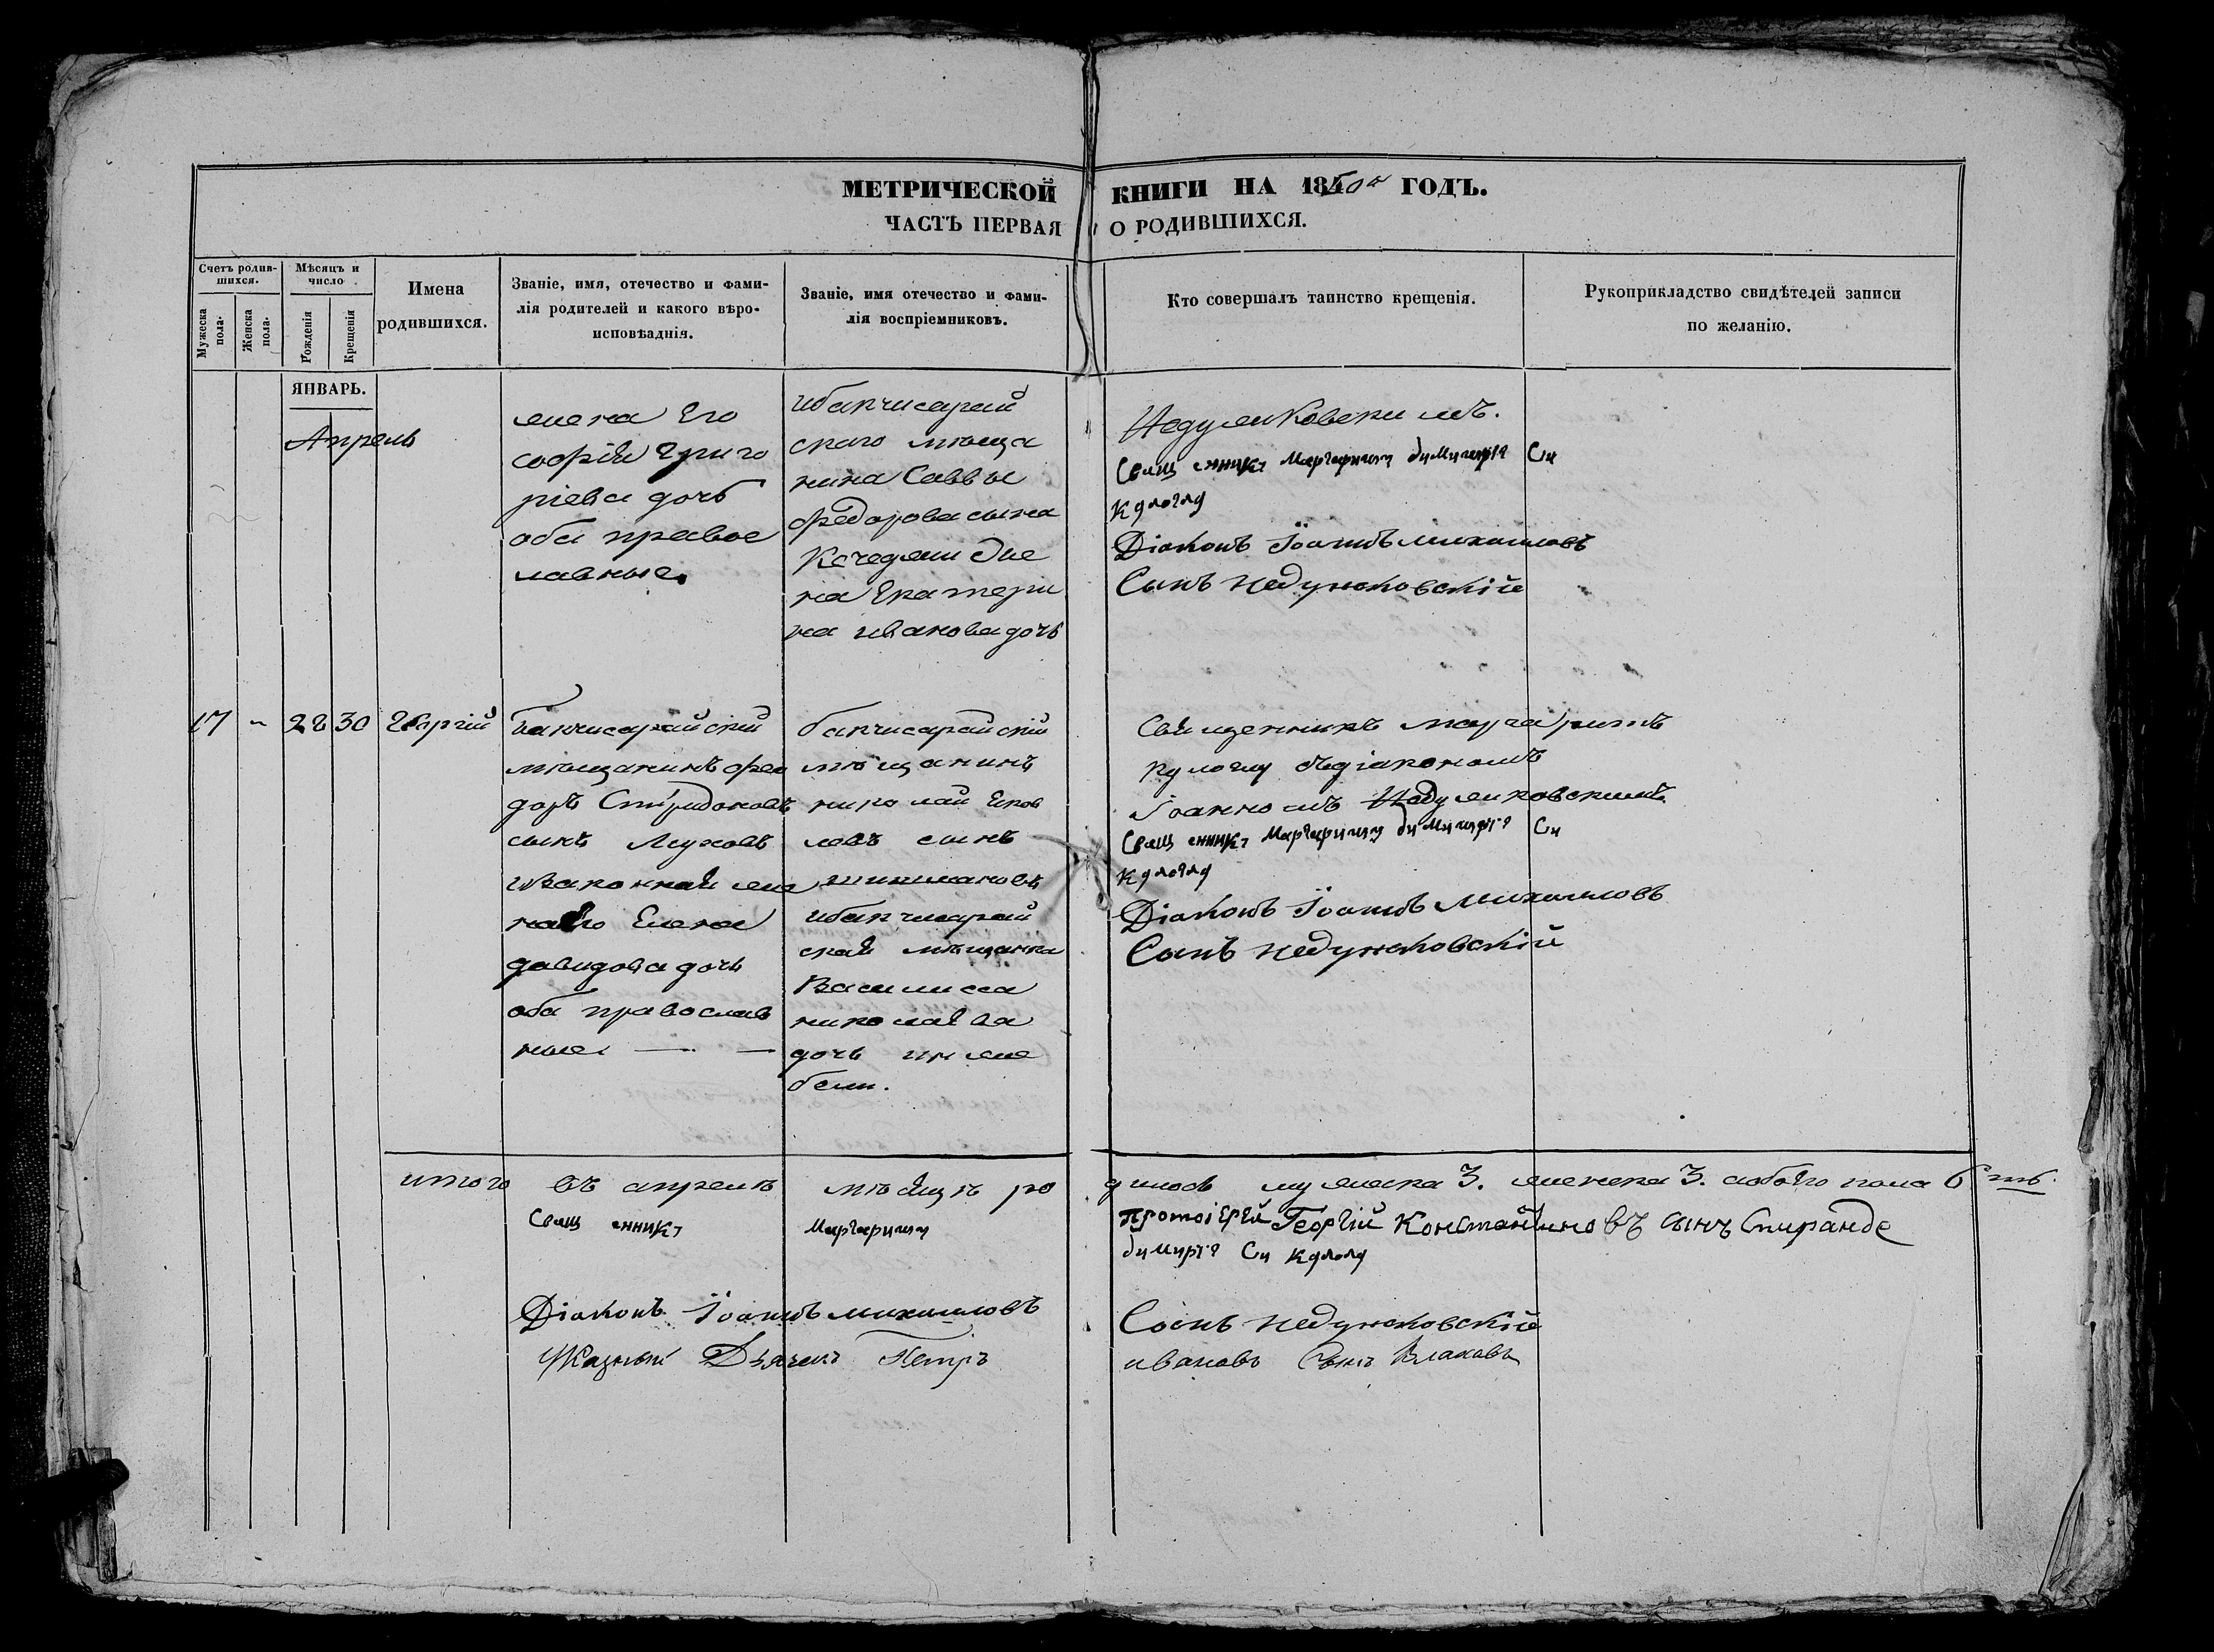 МЕТРИЧЕСКОЙ КНИГИ НА 1850й ГОДЪ.
ЧАСТЬ ПЕРВАЯ О РОДИВШИХСЯ.
Счетъ родив-
шихся.
Мужеска
пола.
Женска
пола.
Мѣсяцъ и
число
Рожденія
Крещенія
Имена
родившихся.
Званіе, имя, отечество и фами-
лія родителей и какого вѣро-
исповѣаднія.
Званіе, имя отечество и фами-
лія воспріемниковъ.
Кто совершалъ таинство крещенія.
Рукоприкладство свидѣтелей записи
по желанію.
ЯНВАРЬ.
Апрель
жена Его
софія Григо
ріева дочь
оба правос
лавные.
ибакчисарай
скаго мѣща
нина Саввы
федорова сына
же
на Екатери
на иванова дочь
Недужковскимъ.
Свящ енникъ Маргаритъ Димитрія Сы
Кулоглу
Діаконъ Іоаннъ Михаиловъ
Сынъ Недужковскій
17 " 22 30 Георгій
бакчисарайскій
мѣщанинъ фео
доръ Спиридоновъ
сынъ
изаконная же
на Его Елена
давидова дочь
оба православ
ные
бакчисарайскій
мѣщанинъ
николай Яков
левъ сынъ
ибакчисарай
ская мѣщанка
Василисса
николаева
дочь
Священникъ Маргаритъ
Кулоглу съ діакономъ
Іоанномъ Недужковскимъ
Свящ енникъ Маргаритъ Димитрія Сы
Кулоглу
Діаконъ Іоаннъ Михаиловъ
Сынъ Недужковскій
итого въ апрелѣ мѣсяцѣ ро дилось мужеска 3. женска 3. а обоего пола 6ть.
протоіерей Георгій Константиновъ сынъ Спиранде
Свящ енникъ Маргаритъ Димитрія Сы Кулоглу
Діаконъ Іоаннъ Михаиловъ Сынъ Недужковскій
Указный Дьячекъ Петръ ивановъ Сынъ Влаховъ